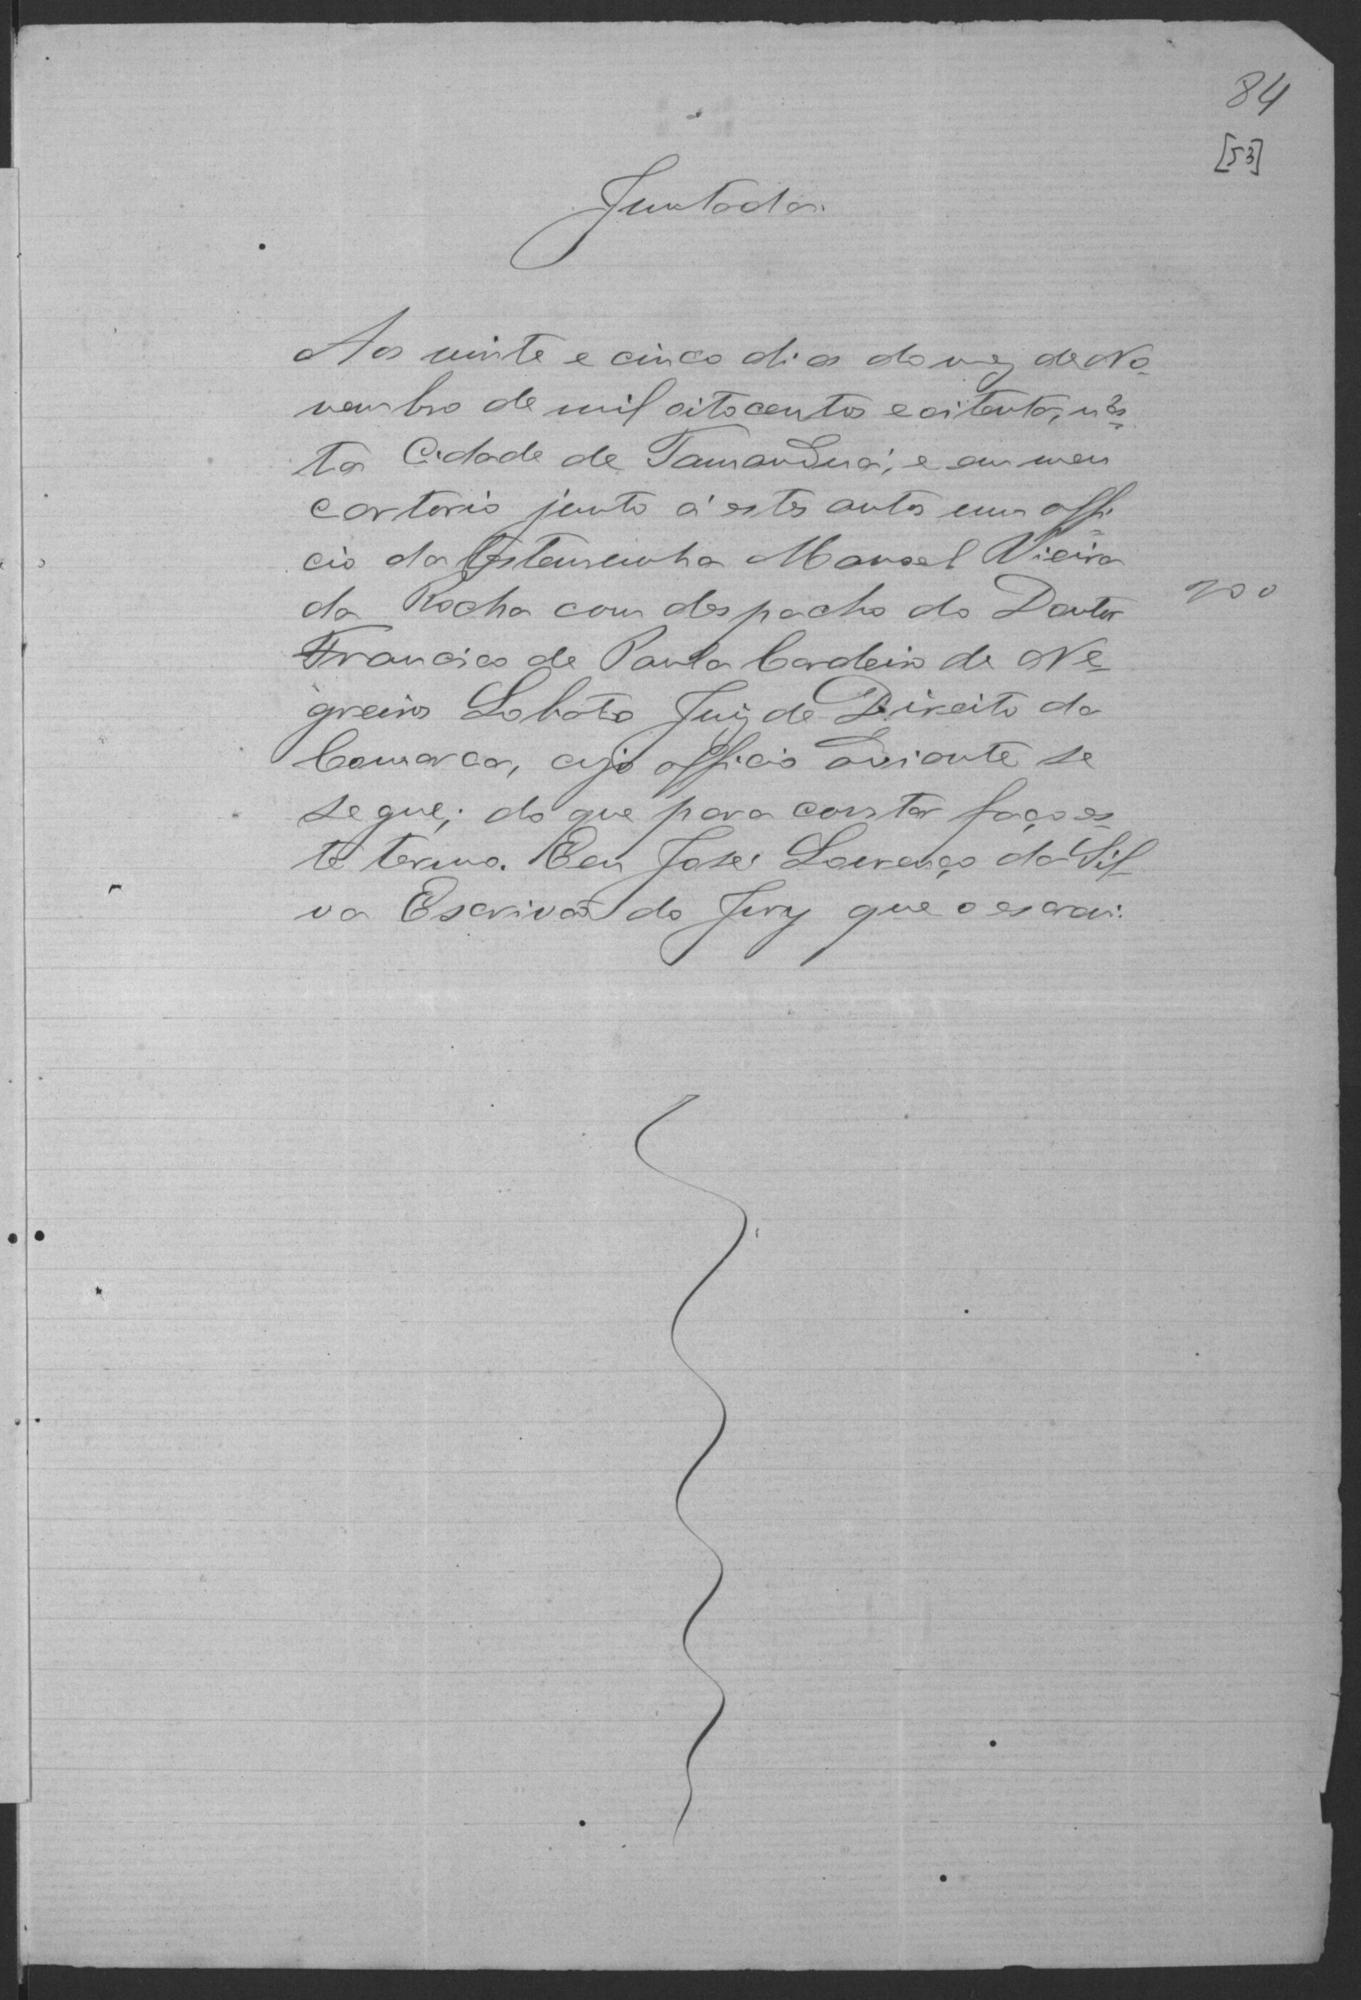 84
[53]
Juntada.
Aos vinte e cinco dias do mez de No-
vembro de mil oitocentos e oitenta, nes-
ta Cidade de Tamanduá, e em meu
cartorio junto á estes autos um offi-
cio da testemunha Manoel Vieira
da Rocha com despacho do Doutor
200
Francisco de Paula Cordeiro de Ne-
greiros Lobato Juiz de Direito da
Comarca, cujo officio adiante se
segue; do que para constar faço es-
te termo. Eu José Lourenço da Sil-
va Escrivaõ do Jury que o escrevi.